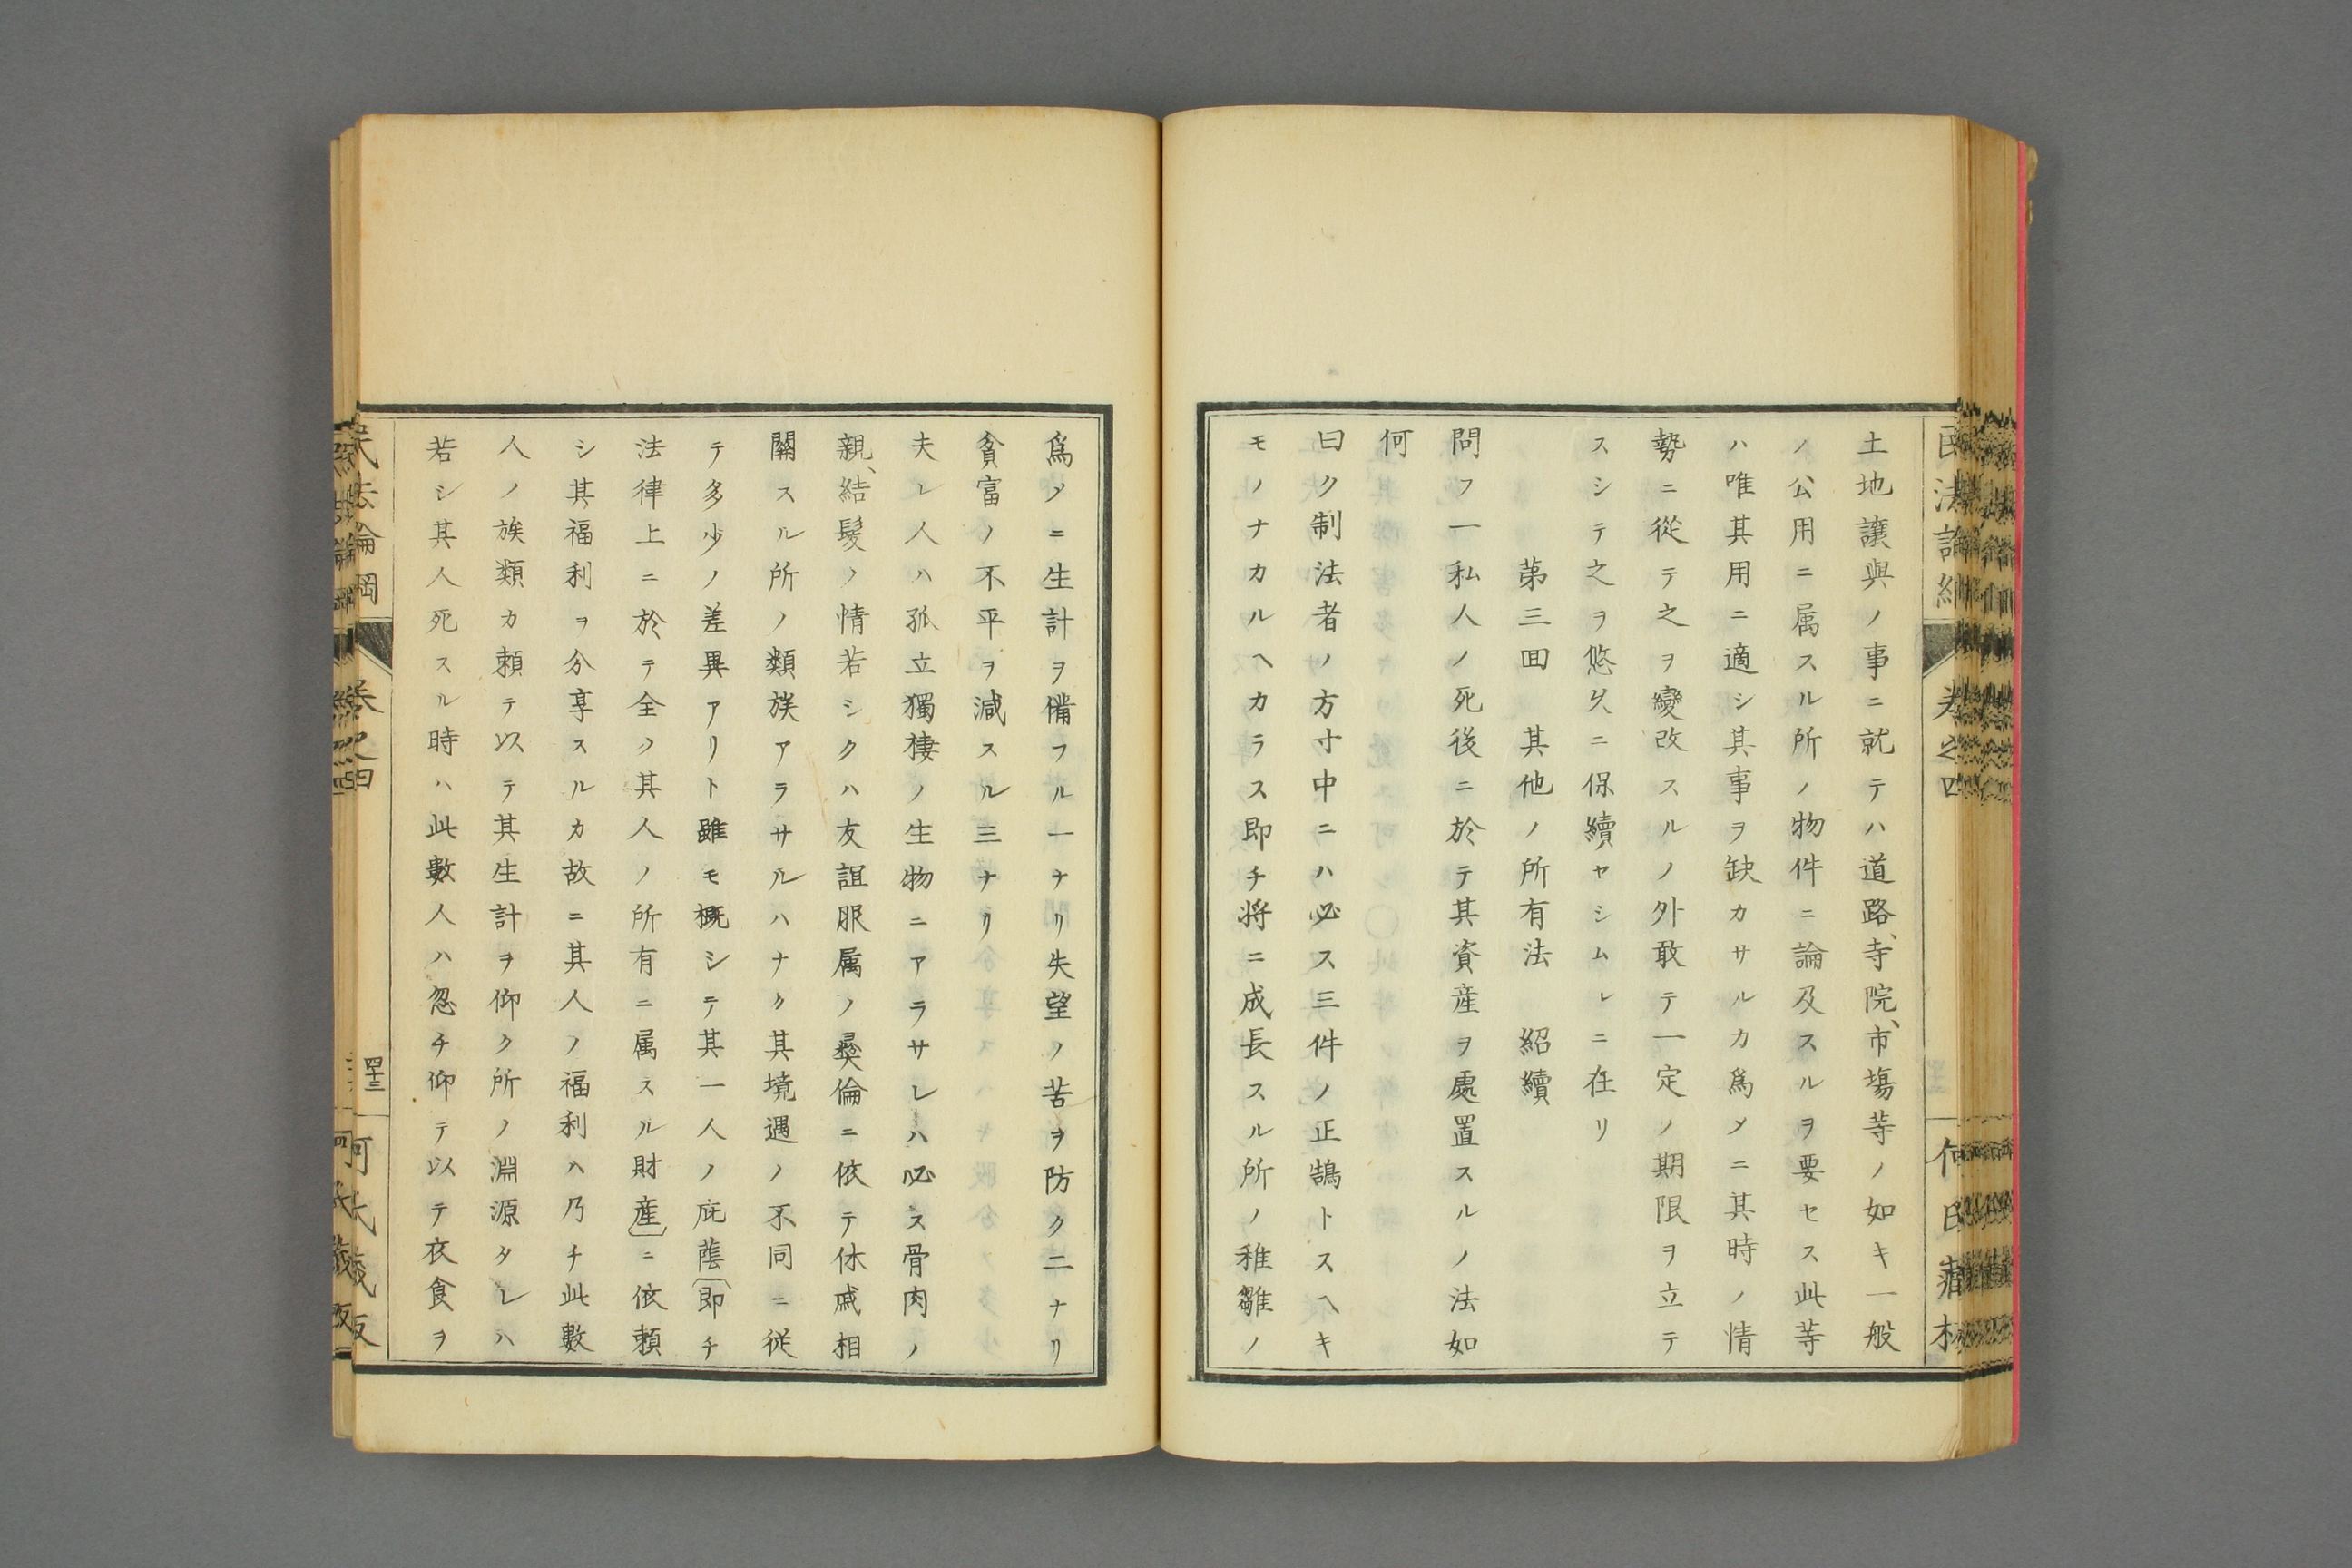 土地讓與ノ事ニ就テハ道路、寺院、市塲等ノ如キ一般
ノ公用ニ属スル所ノ物件ニ論及スルヲ要セス此等
ハ唯其用ニ適シ其事ヲ缺カサルカ爲メニ其時ノ情
勢ニ從テ之ヲ變改スルノ外敢テ一定ノ期限ヲ立テ
スシテ之ヲ悠久ニ保續セシムレニ在リ
第三回 其他ノ所有法 紹續
問フ一私人ノ死後ニ於テ其資産ヲ處置スルノ法如
何
曰ク制法者ノ方寸中ニハ必ス三件ノ正鵠トスヘキ
モノナカルヘカラス即チ将ニ成長スル所ノ稚雛ノ
爲メニ生計ヲ備フル一ナリ失望ノ苦ヲ防ク二ナリ
貧富ノ不平ヲ減スル三ナリ
夫レ人ハ孤立獨棲ノ生物ニアラサレハ必ス骨肉ノ
親、結髮ノ情若シクハ友誼服属ノ彜倫ニ依テ休戚相
關スル所ノ類族アラサルハナク其境遇ノ不同ニ従
テ多少ノ差異アリト雖モ概シテ其一人ノ庇蔭〔即チ
法律上ニ於テ全ク其人ノ所有ニ属スル財産〕ニ依頼
シ其福利ヲ分享スルカ故ニ其人ノ福利ハ乃チ此數
人ノ族類カ頼テ以テ其生計ヲ仰ク所ノ淵源タレハ
若シ其人死スル時ハ此數人ハ忽チ仰テ以テ衣食ヲ
卷之四
四十三
何氏藏版